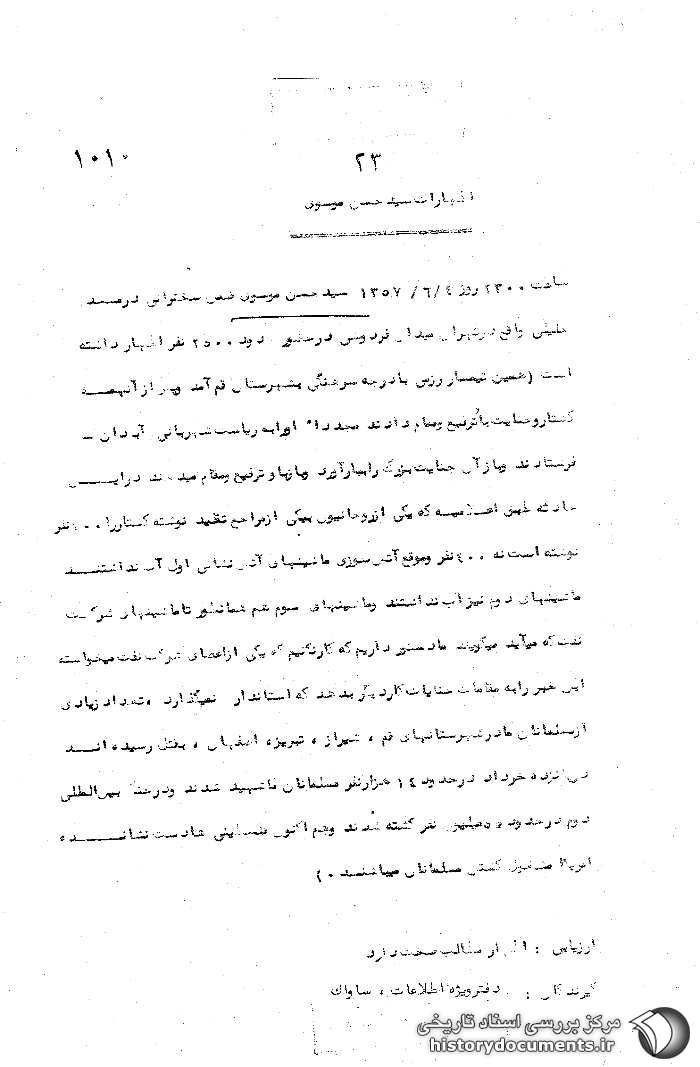 ۱۰۱۰
۲۳
اظهارات سید حسن موسوی
ساعت ۲۳۰۰ روز ۱۳۵۷/۶/۴ سید حسن موسوی ضمن سخنرانی در مسجد
خلیلی واقع در تهران میدان فردوسی در حضور حدود ۲۵۰۰ نفر اظهار داشته
است (همین تیمسار رزمی با درجه سرهنگی بشهرستان قم آمد وپس از آنهمه
کشتار وجنایت با و ترفیع ومقام دادند مجددا" اورا به ریاست شهربانی آبادان -
فرستادند وباز آن جنایت بزرگ را ببار آورد وبازباو ترفیع ومقام میدهند در ایـــن
حادثه طبق اعلامیه که یکی از روحانیون بیکی از مراجع تقلید نوشته کشتار را نفر
نوشته است نه ۴۰۰ نفر وموقع آتش سوزی ماشینهای آتش نشانی اول آب نداشتنـــد
ماشینهای دوم نیز آب نداشتند وماشینهای سوم هم همانطور تا ماشینهای شرکت
نفت که میآید میگویند ما دستور داریم که کار نکنیم که یکی از اعضای شرکت نفت میخواسته
این خبر را به مقامات بدهد که استاندار نمیگذارد ، تعداد زیادی
از مسلمانان ما در شهرستانهای قم ، شیراز ، تبریز ، اصفهان ، بقتل رسیده انـــد
در پانزده خرداد در حدود ۱۴ هزار نفر مسلمانان ما شهید شدند ودر جنگ بین المللی
دوم در حدود ملیون نفر کشته شدند وهم اکنون هادست نشانـــــده
امریکا مشغول کشتن مسلمانان میباشنـــد ۰)
ارزیابی : اظهار مطالب صحت دارد
گیرندگان : دفتر ویژه اطلاعات ، ساواک
مرکز بررسی اسناد تاریخی
historydocuments.ir